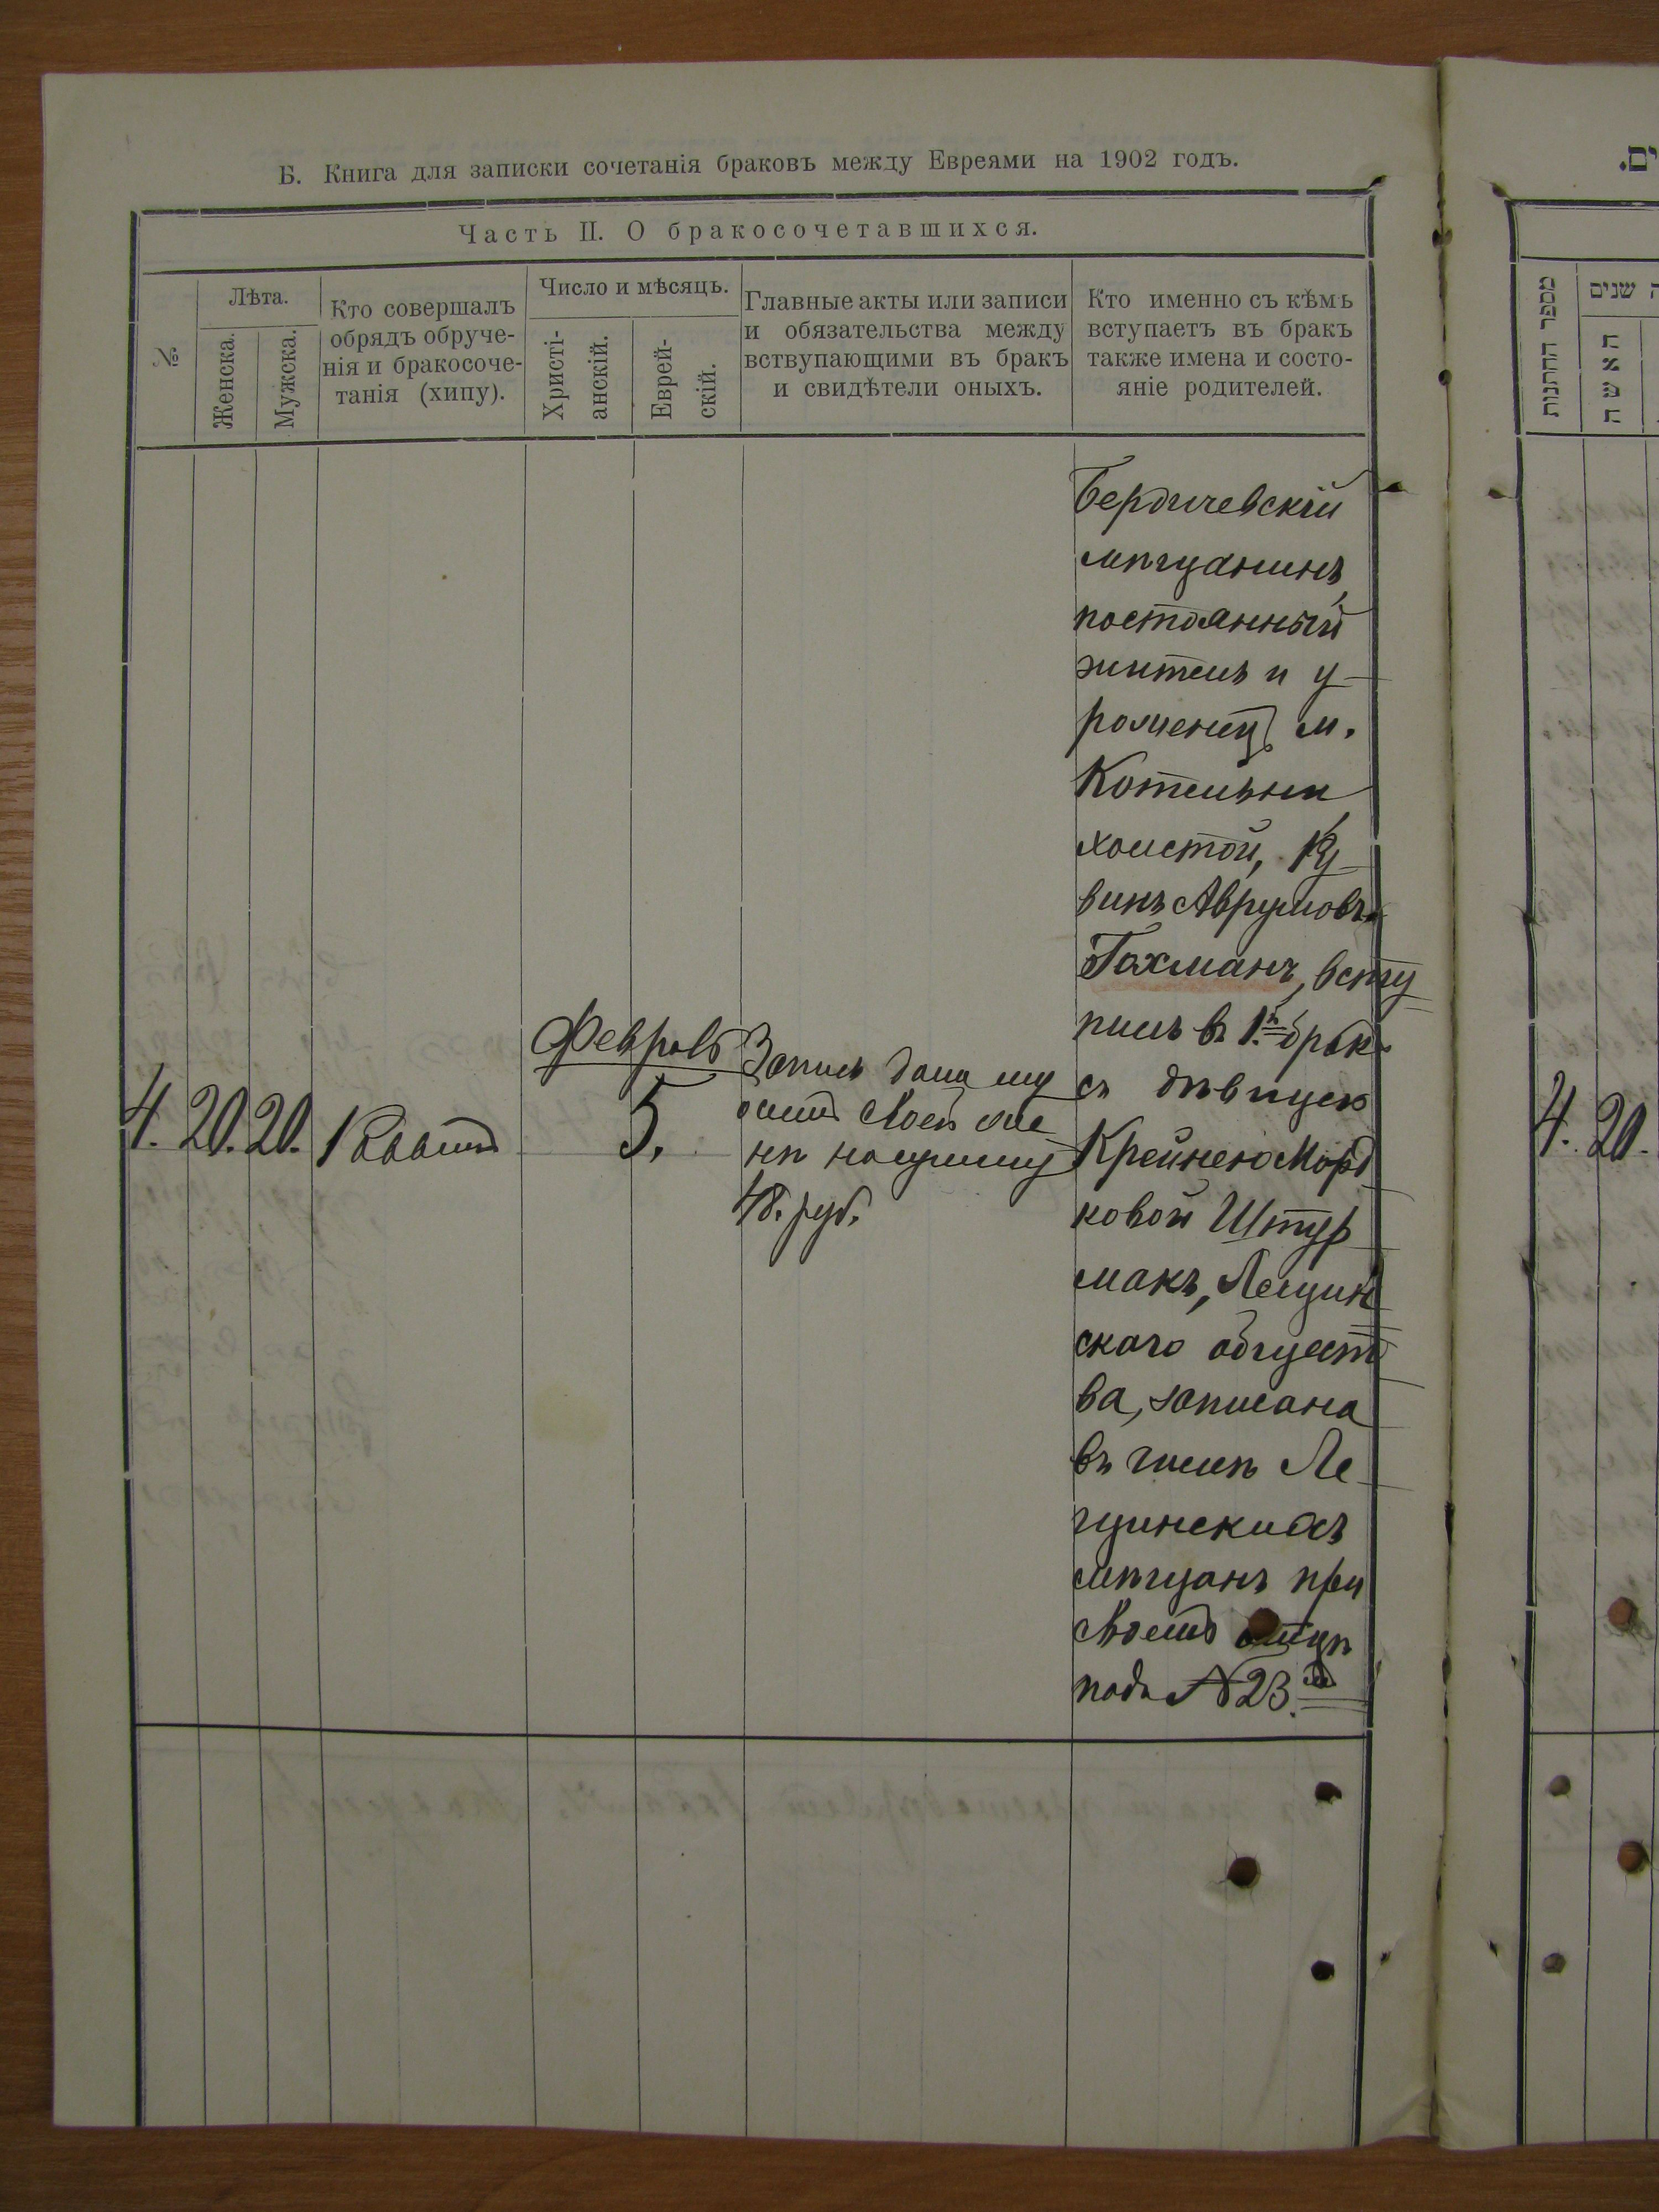 Б. Книга для записки сочетанія браковъ между Евреями на 1902 годъ.
Часть II. О бракосочетавшихся.
№
Лѣта.
Женска.
Мужска.
Кто совершалъ
обрядъ обруче-
нія и бракосоче-
танія (хипу).
Число и мѣсяцъ.
Христі-
анскій.
Еврей-
скій.
Главные акты или записи
и обязательства между
вствупающими въ бракъ
и свидѣтели оныхъ.
Кто именно съ кѣмъ
вступаетъ въ бракъ
также имена и состо-
яніе родителей.
4. 20. 20.
Февраль
5.
Запись дана му
жемъ своей же
нѣ на сумму
48. руб.
Бердичевскій
мѣщанинъ,
постоянный
житель и у-
роженецъ м.
Котельни
холостой,
Аврумовъ
Гохманъ, всту
пилъ въ 1й бракъ
съ дѣвицею
Крейнею Морд
ковой Штур
макъ, Лещин
скаго общест
ва, записана
въ числѣ Ле
щинскихъ
мѣщанъ при
своемъ отцѣ
подъ № 23.
ים.
מספר החתנות
שנים
האשה
4. 20.